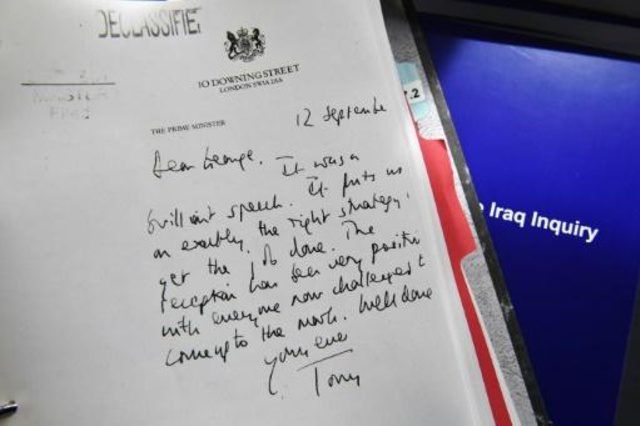 DECLASSIFIED
10 DOWNING STREET
LONDON SW1A 2AA
THE PRIME MINISTER
12 September
Dear George, It was a
brilliant speech. It puts us
on exactly the right strategy to
get the job done. The
reception has been very positive
with everyone now challenged to
come up to the mark. Well done
Yours ever
Tony
7.2
Iraq Inquiry